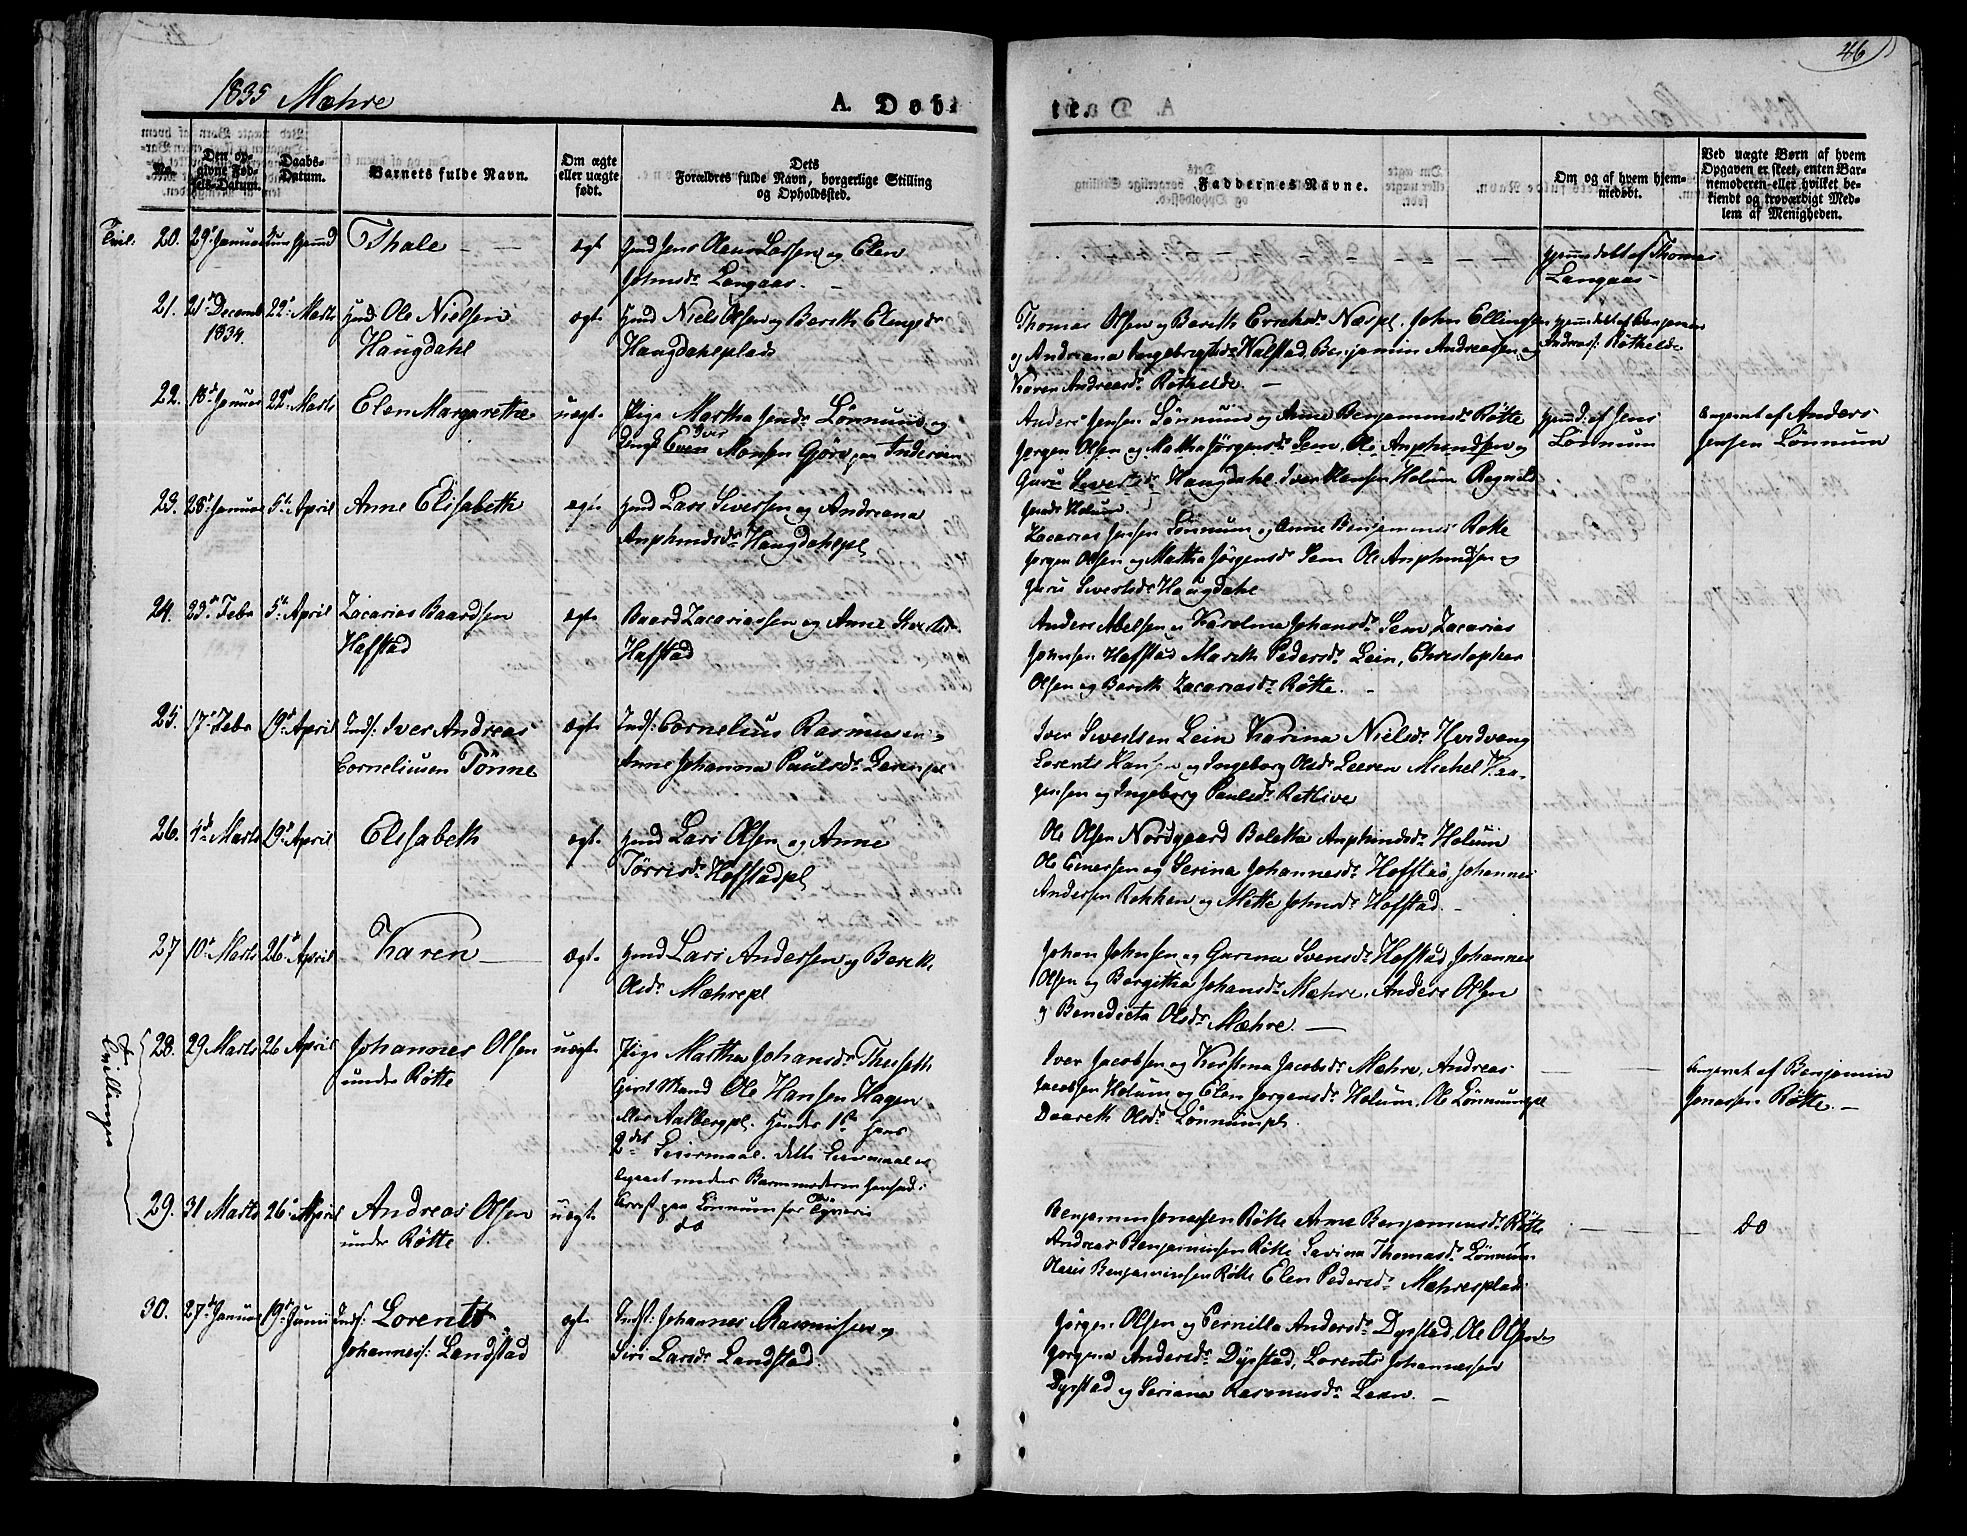 1835 Mæhre
A. Døbte.
46
No.
Den opgivne Fødsels-Datum.
Daabs-Datum.
Barnets fulde Navn.
Om ægte eller uægte født.
Dets Forældres fulde Navn, borgerlige Stilling og Opholdssted.
Faddernes Navne.
Om og af hvem hjemmedøbt.
Ved uægte Børn af hvem Opgaven er skeet, enten Barnemoderen eller hvilket bekiendt og troværdigt Medlem af Menigheden.
20. 29d Januar
Thale
ægt
Jens Olaus Larsen og Elen
Johnsdr Langaas.
hjemmedøbt af Thomas
Langaas
21. 21d Decemb 1834. 22d Marts
Ole Nielsen
Haugdahl
ægt
Niels Olsen og Bereth Elingsdr
Haugdahlsplads
Thomas Olsen og Bereth Erichsdr Næspl. John Ellingsen
og Andreana Ingebrigtsdr Walstad, Benjamin Andreassen og
Karen Andreasdr Røthelde.
hjemmedøbt af Benjamin
Andreass: Røthelde
22. 18d Januar 22d Marts
Elen Margarethe
uægt
Pige Martha Jensdr Lønnum og
Even Iver Monsen Gjørv paa Inderøen
Anders Jensen Lønnum og Anne Benjaminsdr Røtte
Jørgen Olsen og Martha Jørgensdr Sem, Ole Anphindsen og
Guru Sivertsdr Haugdahl. Iver Hansen Holum Ragnild
Holum.
hjemd: af Jens
Lønnum
Angivet af Anders
Jensen Lønnum
23. 28d Januar 5te April
Anne Elisabeth
ægt
Lars Sivertsen og Andreana
Anphindsdr Haugdahlspl
Zacarias Jensen Lønnum og Anne Benjaminsdr Røtte
Jørgen Olsen og Martha Jørgensdr Sem Ole Anphindsen og
Guru Sivertsdr Haugdahl
24. 23d Febr 5te April
Zacarias Baardsen
Hafstad
ægt
Baard Zacariassen og Anne
Hafstad
Anders Abelsen og Karolina Johansdr Sem, Zacarias
Johnsen Hafstad Mareth Pedersdr Lein, Christopher
Olsen og Bereth Zacariasdr Røtte.
25. 17d Febr 19d April
Inds: Iver Andreas
Corneliusen Tønne
ægt
Inds: Cornelius Rasmusen og
Anne Johanna Paulsdr
Iver Sivertsen Lein Karina Nielsdr Hvedvang
Lorents Hansen og Ingeborg Olsdr Leeren Michel Haagensen og Ingeborg Paulsdr
26. 1d Marts 19d April
Elisabeth
ægt
Lars Olsen og Anne
Tørrisdr Hofstadpl
Ole Olsen Nordgaard Beletta Anphindsdr Holum
Ole Einersen og Serina Johannesdr Hofstad, Johannes
Andersen Rekken og Mette Johnsdr Hofstad
27 10d Marts 26d April
Karen
ægt
Lars Andersen og Bereth
Olsdr Mæhrepl
Johan Johnsen og Gurina Svensdr Hofstad Johannes
Olsen og Bergitha Johansdr Mæhre, Anders Olsen
og Benedicta Olsdr Mæhre.
Tvillinger
28. 29 Marts 26 April
Johannes Olsen
under Røtte
uægt
Pige Martha Johansdr Thuseth
Gift Mand Ole Hansen Hagen
Aalbergpl. Hendes 1ste hans
2det Leiermaal. dette Leiermaal er
Barnemoderen
Arrest paa Lønnum for Tyverie
Iver Jacobsen og Kirstina Jacobsdr Mæhre, Andreas
Jacobsen Holum og Elen Jørgensdr Holum, Ole Lønnumspl
Daareth Olsdr Lønnumpl.
Angivet af Benjamin
Jonassen Røtte.
29. 31 Marts 26d April
Andreas Olsen
under Røtte
uægt
do
Benjamin Jonassen Røtte Anne Benjaminsdr Røtte
Andreas Benjaminsen Røtte, Lavina Thomasdr Lønnum
Benjaminsen Røtte Elen Pedersdr Mæhresplads
do
30. 27d Januar 19d Junii
Inds: Lorents
Johanness: Landstad
ægt
Inds: Johannes Rasmusen og
Siri Larsdr Landstad
Jørgen Olsen og Pernilla Andersdr Dyrstad, Ole Olsen og
Jørgina Andersdr Dyrstad, Lorents Johannessen
Dyrstad og Seriana Rasmusdr Leren.